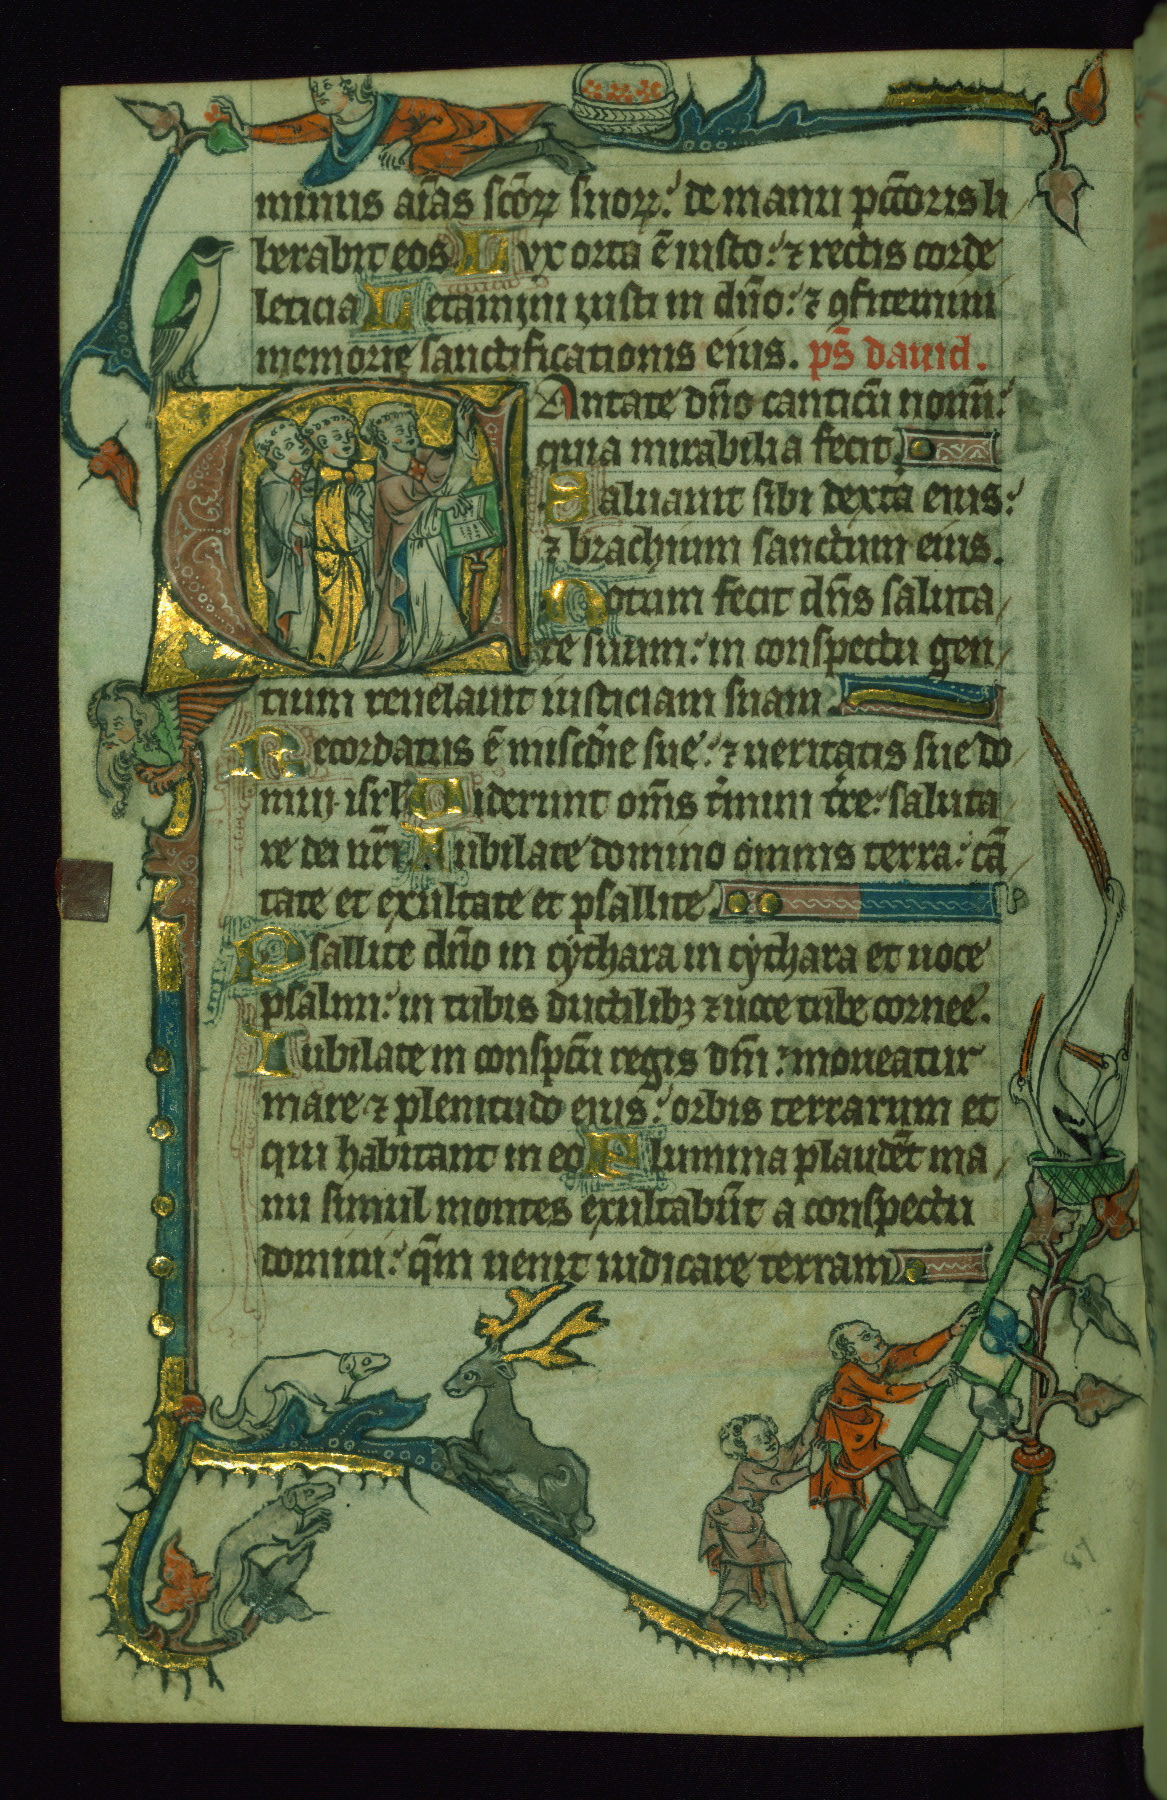 minus aīas sc̄oꝝ suoꝝ: de manu pc̄toris li
berabit eos Lux orta ē iusto: ⁊ rectis corde
leticia Letamini iusti in dn̄o: ⁊ ꝯfitemini
memorie sanctificationis eius. ps̄ dauid.
CAntate dn̄o canticū nouū:
quia mirabilia fecit.
Saluauit sibi dext̄a eius:
⁊ brachium sanctum eius.
Notum fecit dn̄s saluta
re suum: in conspectu gen
tium reuelauit iusticiam suam.
Recordatus ē misc̄die sue: ⁊ ueritatis sue do
mui isrl̄ Uiderunt om̄s t̄mini t̄re: saluta
re dei nr̄i Iubilate domino omnis terra: cā
tate et exultate et psallite.
Psallite dn̄o in cythara in cythara et uoce
psalmi: in tubis ductilibꝫ ⁊ uoce tube cornee.
Iubilate in conspc̄tu regis dn̄i: moueatur
mare ⁊ plenitudo eius: orbis terrarum et
qui habitant in eo Flumina plaudēt ma
nu simul montes exultabūt a conspectu
domini: qm̄ uenit iudicare terram
87